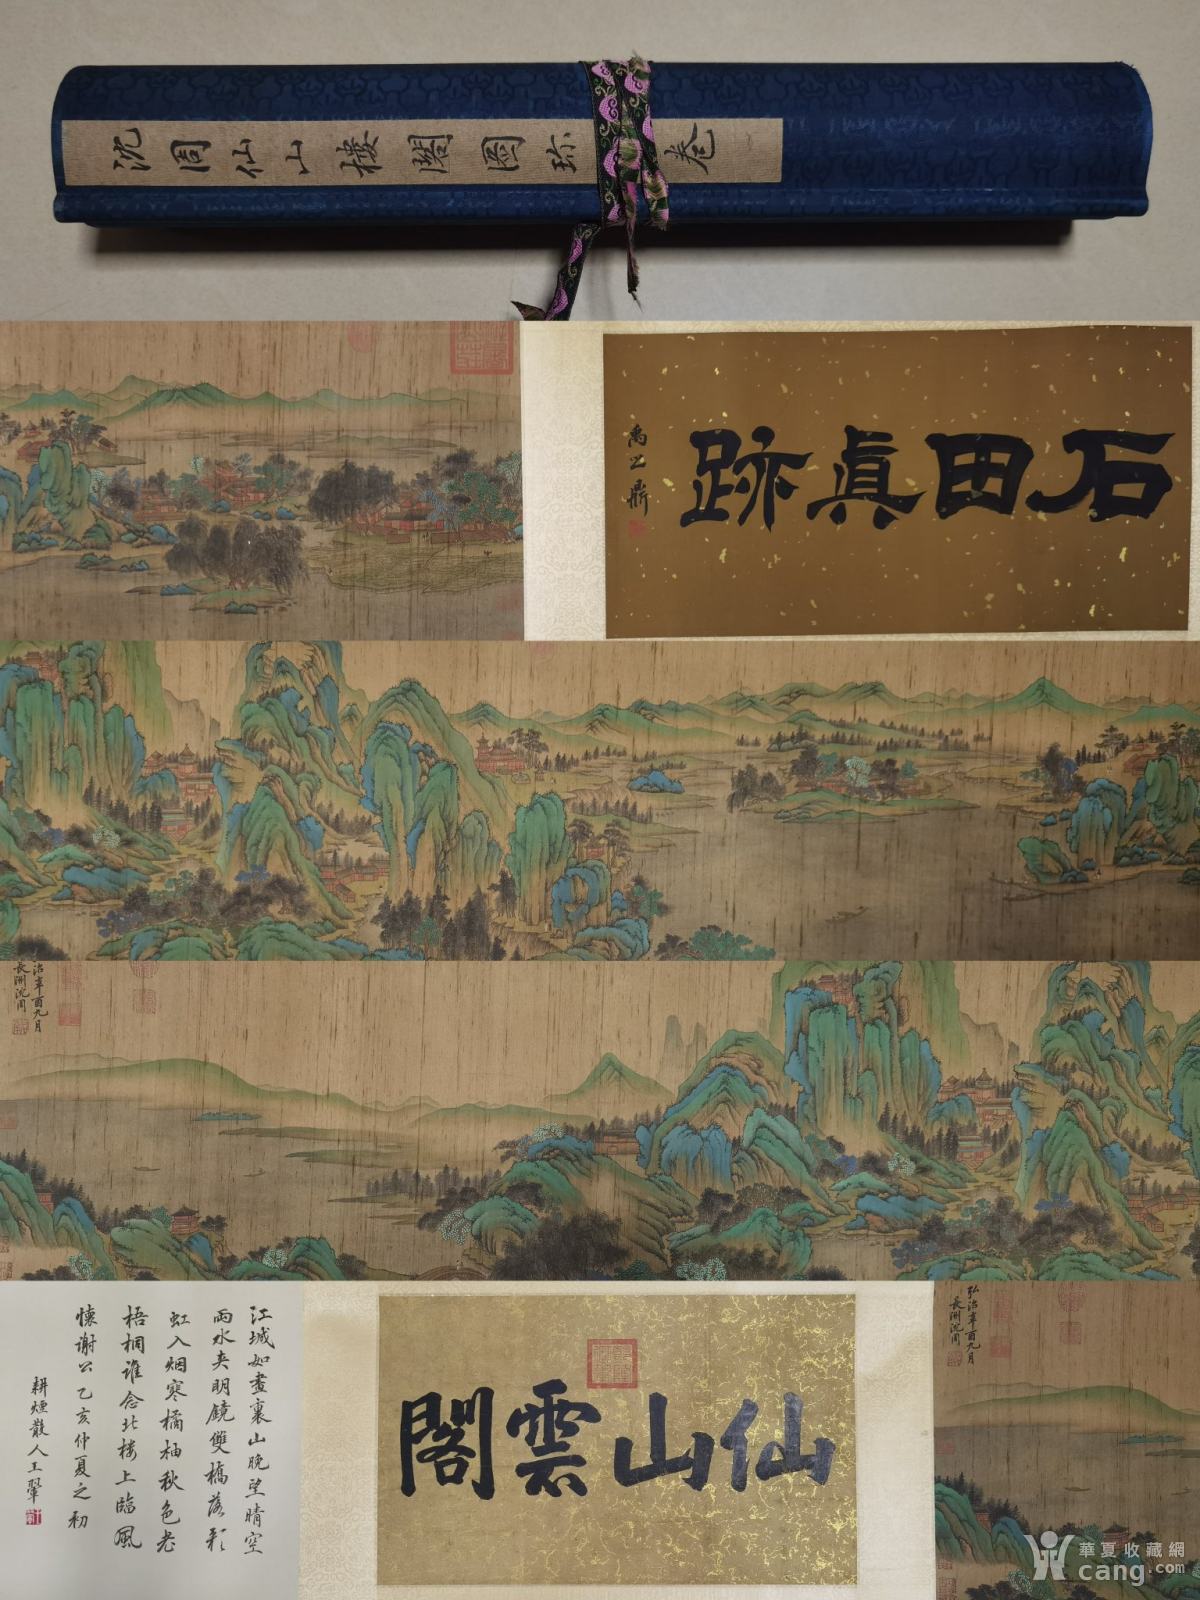 沈周仙山樓閣圖珎
卷
石田眞跡
禹之鼎
治辛酉九月
長洲沈周
仙山雲閣
弘治辛酉九月
長洲沈周
江城如畫裏山晚望晴空
兩水夾明鏡雙橋落彩
虹入烟寒橘柚秋色老
梧桐誰念北楼上臨風
懷謝公乙亥仲夏之初
耕煙散人王翬
華夏收藏網
cang.com